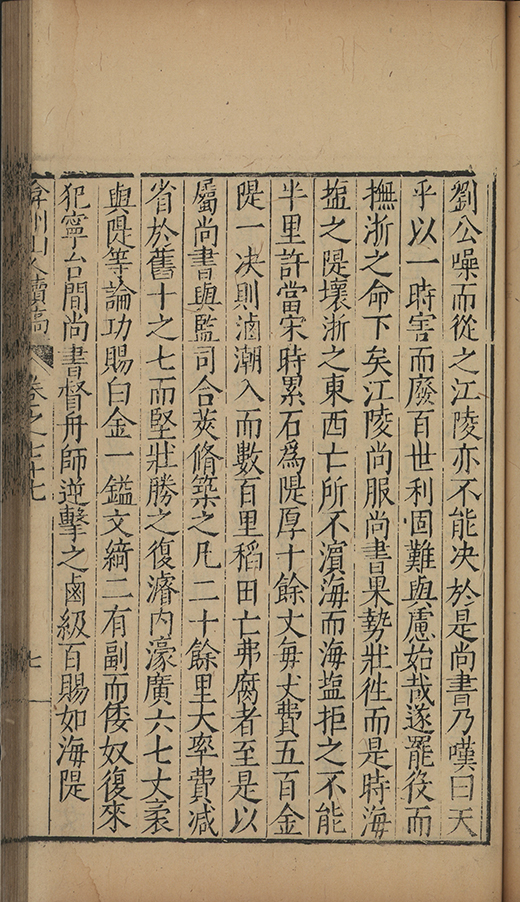 劉公噪而從之江陵亦不能决於是尚書乃嘆曰天
乎以一時害而廢百世利固難與慮始哉遂罷役而
撫浙之命下矣江陵尚服尚書果勢壯徃而是時海
塩之隄壞浙之東西亡所不濵海而海塩拒之不能
半里許當宋時累石爲隄厚十餘丈每丈費五百金
隄一决則滷潮入而數百里稻田亡弗腐者至是以
屬尚書與監司合莢脩築之凡二十餘里大率費減
省於舊十之七而堅壯勝之復濬内濠廣六七丈袤
與隄等論功賜白金一鎰文綺二有副而倭奴復來
犯寧台間尚書督舟師逆擊之鹵級百賜如海隄
弇州山人續稿
卷之七十七
七